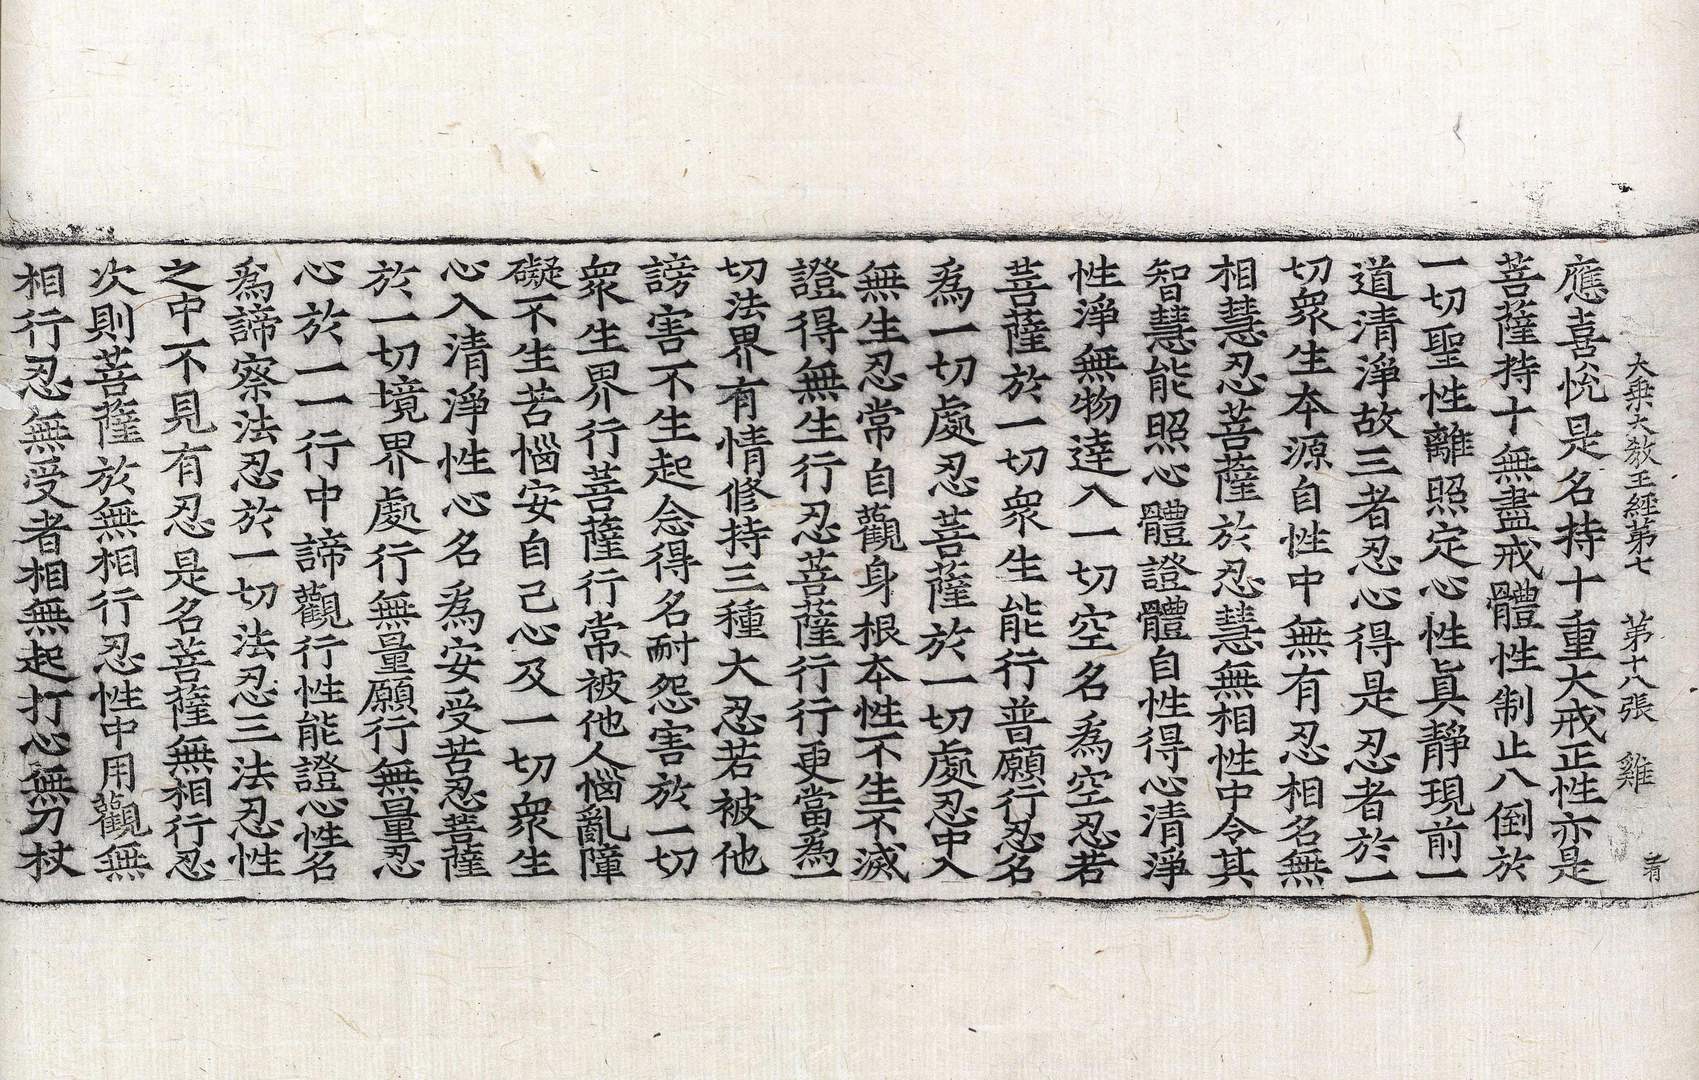 大乘大教王經第七 第十八張 雞
應喜悅是名持十重大戒正性亦是
菩薩持十無盡戒體性制止八倒於
一切聖性離照定心性眞靜現前一
道清淨故三者忍心得是忍者於一
切衆生本源自性中無有忍相名無
相慧忍菩薩於忍慧無相性中令其
智慧能照心體證體自性得心清淨
性淨無物達入一切空名爲空忍若
菩薩於一切衆生能行普願行忍名
爲一切處忍菩薩於一切處忍中入
無生忍常自觀身根本性不生不滅
證得無生行忍菩薩行行更當爲一
切法界有情修持三種大忍若被他
謗害不生起念得名耐怨害於一切
衆生界行菩薩行常被他人惱亂障
礙不生苦惱安自己心及一切衆生
心入清淨性心名爲安受苦忍菩薩
於一切境界處行無量願行無量忍
心於一一行中諦觀行性能證心性名
爲諦察法忍於一切法忍三法忍性
之中不見有忍是名菩薩無相行忍
次則菩薩於無相行忍性中用觀無
相行忍無受者相無起打心無刀杖